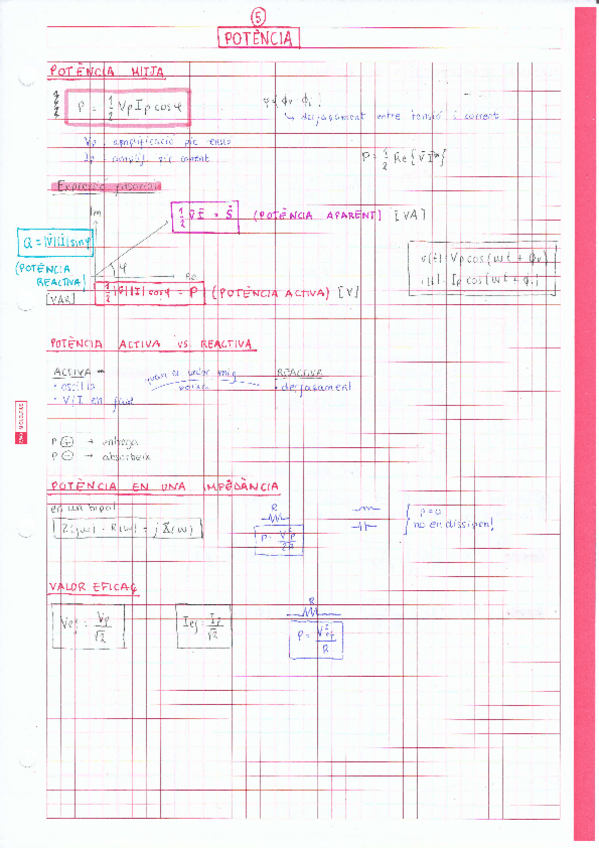 5
POTÈNCIA
POTÈNCIA MITJA
P = 1/2 Vp Ip cos φ
φ { φv φi
↳ desfasament entre tensió i corrent
Vp = amplificació pic
Ip = pic corrent
P = 1/2 Re{V̄ Ī*}
Expressió fasorial
Im
1/2 V̄ Ī = S̄ (POTÈNCIA APARENT) [VA]
Q = |V̄||Ī| sin φ
(POTÈNCIA
REACTIVA)
[VAR]
φ
Re
1/2 |V̄||Ī| cos φ = P (POTÈNCIA ACTIVA)
v(t) = Vp cos(ωt + φv)
i(t) = Ip cos(ωt + φi)
POTÈNCIA ACTIVA VS REACTIVA
ACTIVA
REACTIVA
• oscil·la
• desfasament
• V i I en fase
P ⊕ → entrega
P ⊖ → absorbeix
POTÈNCIA EN UNA IMPEDÀNCIA
en un bipol
Z(jω) = R(ω) + j X(ω)
R
P = Vp²/2R
P = 0
no en dissipen!
VALOR EFICAÇ
Vef = Vp/√2
Ief = Ip/√2
R
P = V²ef/R